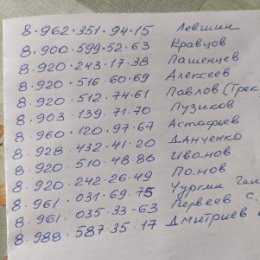 8·962·351·94·15 Левшин
8·900·599·52·63 Кравцов
8·920·243·17·38 Пашенцев
8·920·516·60·69 Алексеев
8·920·512·74·61 Павлов (Грек
8·903·139·71·70 Пузиков
8·960·120·97·67 Астафьев
8·928·432·41·20 Данченко
8·920·510·48·86 Иванов
8·920·242·26·49 Попов
8·961·031·69·75 Чургин Ген
8·961·035·33-63 Первеев С.
8·988·587·35·17 Дмитриев